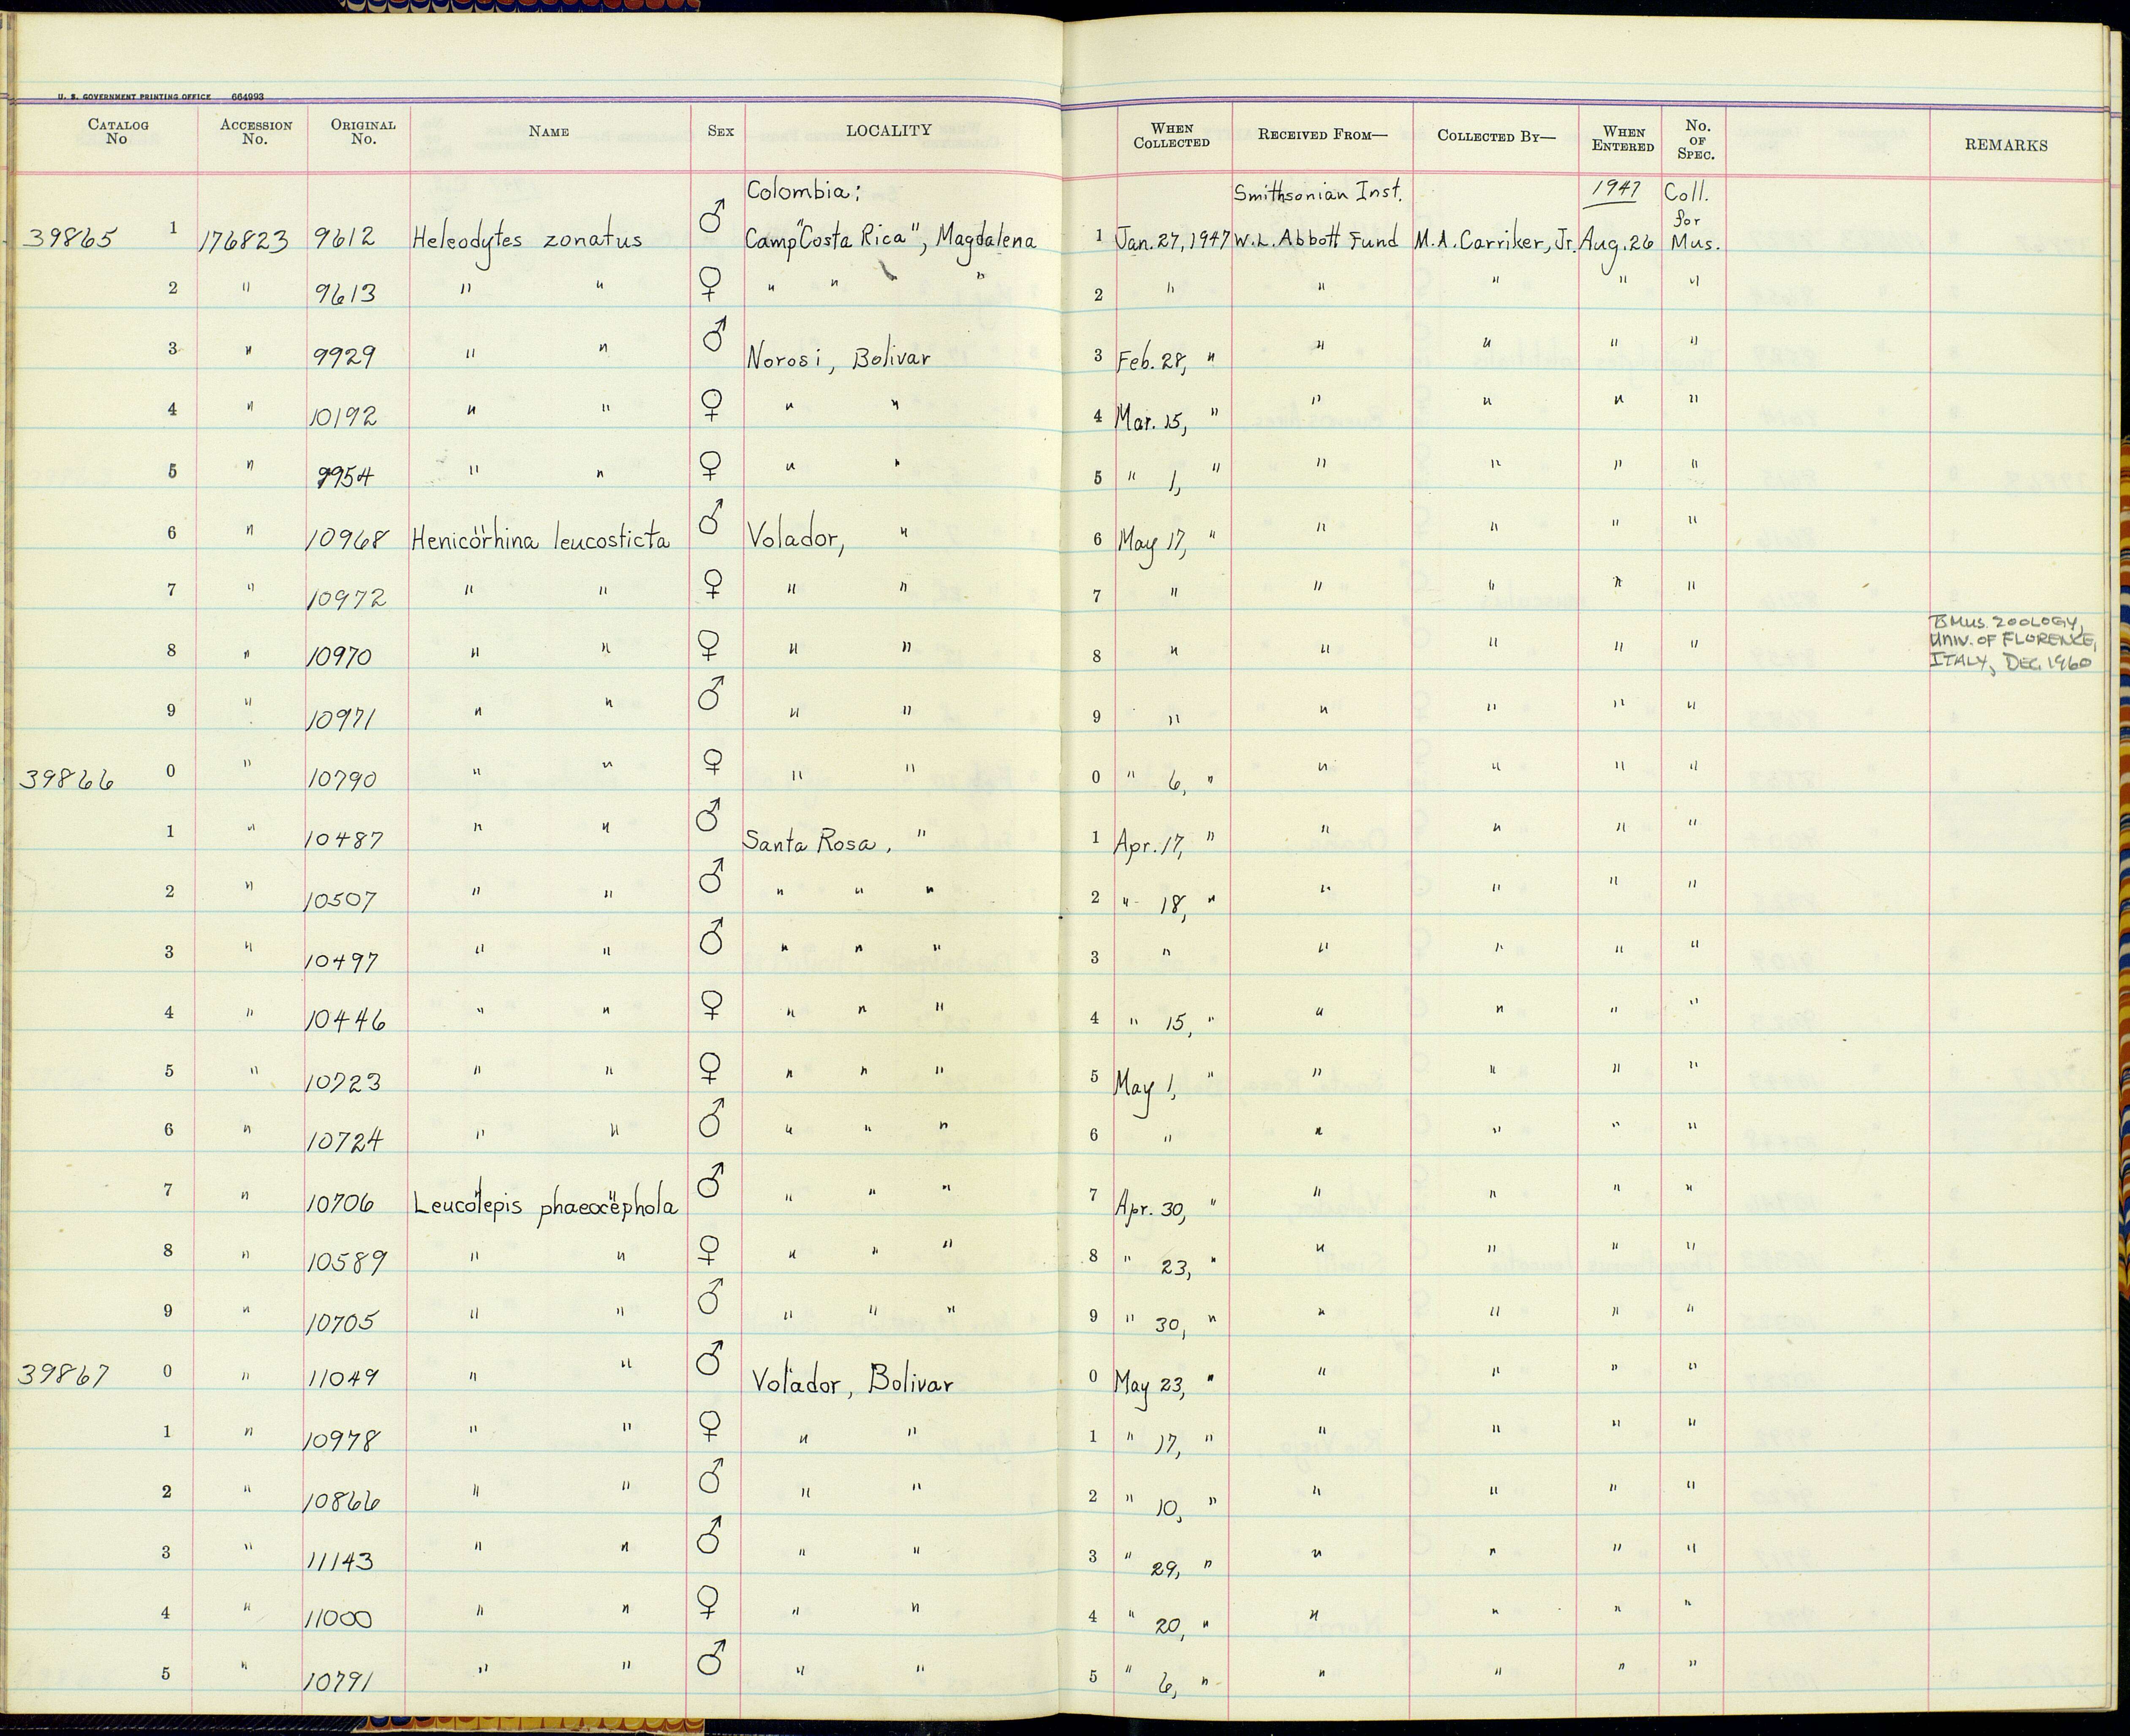 U. S. GOVERNMENT PRINTING OFFICE 664993
CATALOG No ACCESSION No. ORIGINAL No. NAME SEX LOCALITY WHEN COLLECTED RECEIVED FROM— COLLECTED BY— WHEN ENTERED No. OF SPEC. REMARKS
Colombia: Smithsonian Inst. 1947 Coll. for
39865 1 176823 9612 Heleodytes zonatus ♂ Camp "Costa Rica", Magdalena 1 Jan. 27, 1947 W. L. Abbott Fund M. A. Carriker, Jr. Aug. 26 Mus.
2 " 9613 " " ♀ " " " 2 " " " " "
3 " 9929 " " ♂ Norosi, Bolivar 3 Feb. 28, " " " " "
4 " 10192 " " ♀ " " 4 Mar. 15, " " " " "
5 " 9954 " " ♀ " " 5 " 1, " " " " "
6 " 10968 Henicörhina leucosticta ♂ Volador, " 6 May 17, " " " " "
7 " 10972 " " ♀ " " 7 " " " " "
8 " 10970 " " ♀ " " 8 " " " " " Mus. ZOOLOGY, UNIV. OF FLORENCE, ITALY, DEC. 1960
9 " 10971 " " ♂ " " 9 " " " " "
39866 0 " 10790 " " ♀ " " 0 " 6, " " " " "
1 " 10487 " " ♂ Santa Rosa, " 1 Apr. 17, " " " " "
2 " 10507 " " ♂ " " " 2 " 18, " " " " "
3 " 10497 " " ♂ " " " 3 " " " " "
4 " 10446 " " ♀ " " " 4 " 15, " " " " "
5 " 10723 " " ♀ " " " 5 May 1, " " " " "
6 " 10724 " " ♂ " " " 6 " " " " "
7 " 10706 Leucolepis phaeocëphola ♂ " " " 7 Apr. 30, " " " " "
8 " 10589 " " ♀ " " " 8 " 23, " " " " "
9 " 10705 " " ♂ " " " 9 " 30, " " " " "
39867 0 " 11049 " " ♂ Volador, Bolivar 0 May 23, " " " " "
1 " 10978 " " ♀ " " 1 " 17, " " " " "
2 " 10866 " " ♂ " " 2 " 10, " " " " "
3 " 11143 " " ♂ " " 3 " 29, " " " " "
4 " 11000 " " ♀ " " 4 " 20, " " " " "
5 " 10791 " " ♂ " " 5 " 6, " " " " "